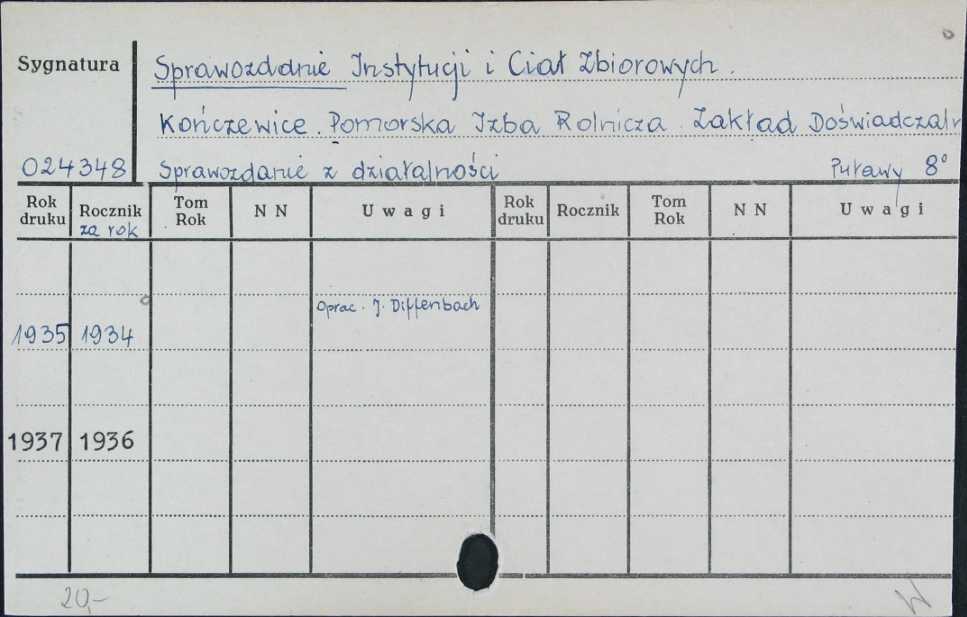 Sygnatura
Sprawozdanie Instytucji i Ciał Zbiorowych.
Kończewice. Pomorska Izba Rolnicza. Zakład Doświadczaln
024348 Sprawozdanie z działalności Puławy 8°
Rok druku Rocznik za rok Tom Rok N N Uwagi Rok druku Rocznik Tom Rok N N Uwagi
Oprac. J. Diffenbach
1935 1934
1937 1936
20,- W